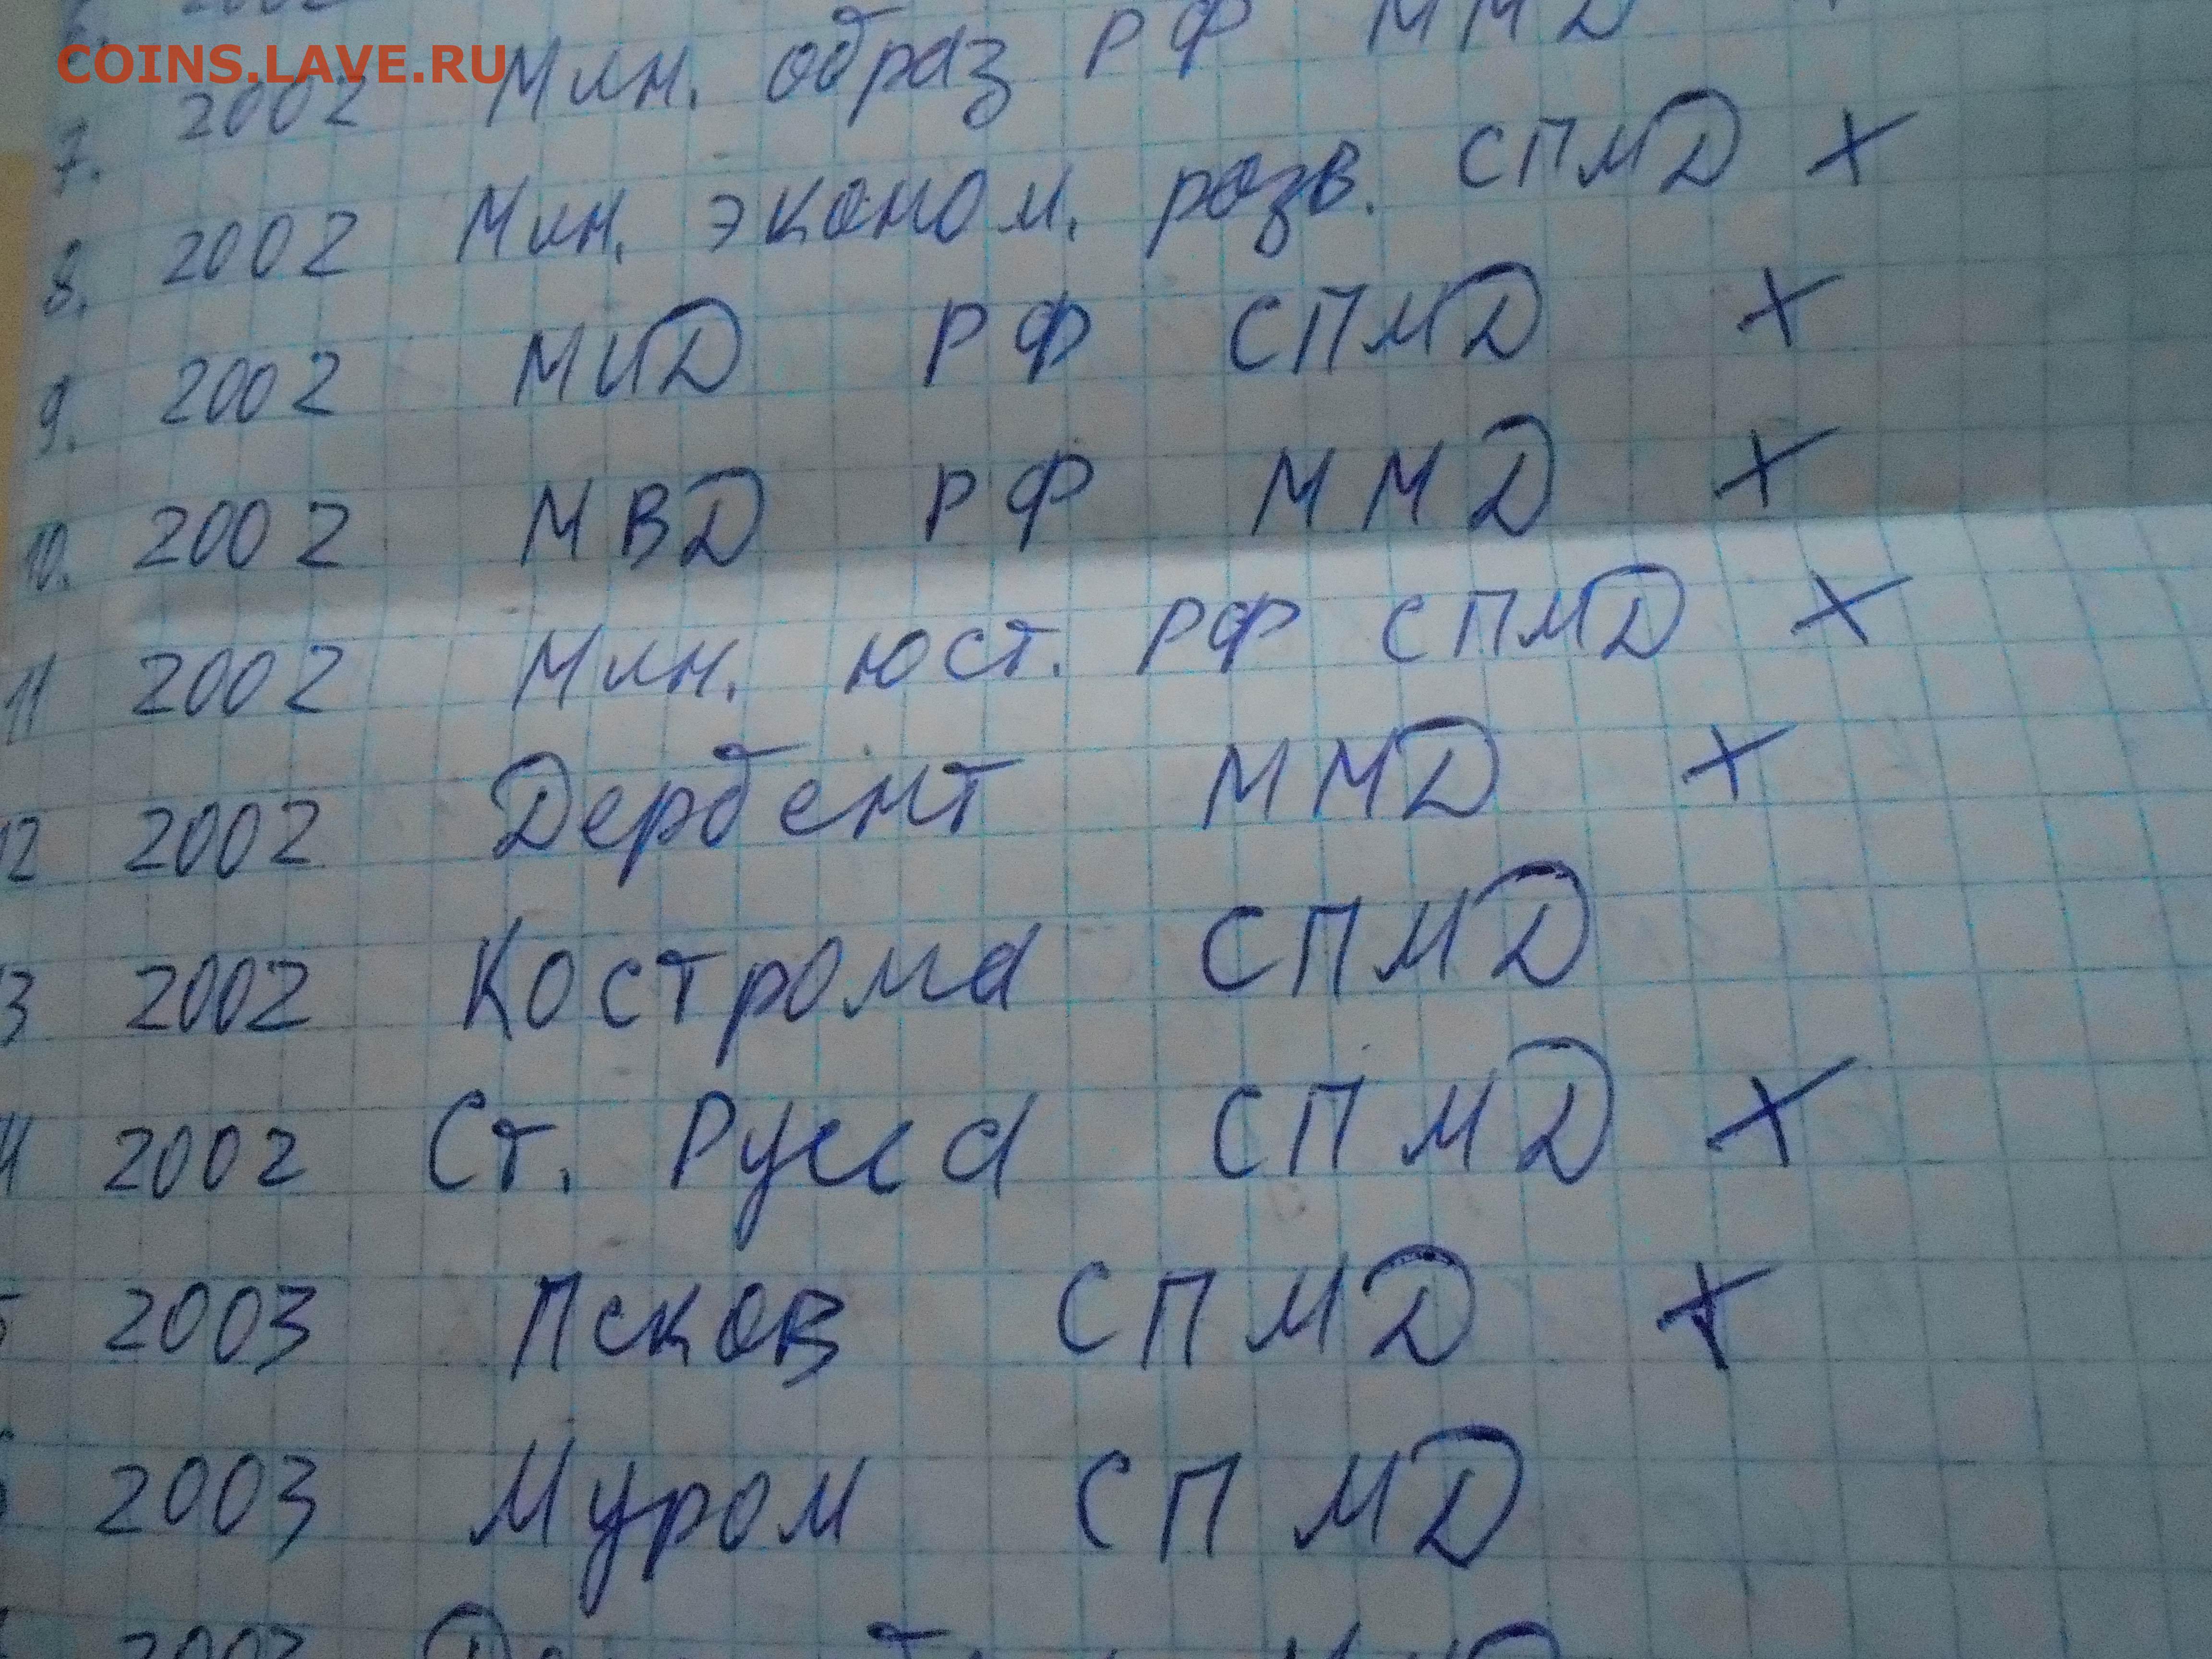 6. 2002
COINS.LAVE.RU
7. 2002 Мин. образ РФ ММД
8. 2002 Мин. эконом. разв. СПМД X
9. 2002 МИД РФ СПМД X
10. 2002 МВД РФ ММД X
11 2002 Мин. юст. РФ СПМД X
12 2002 Дербент ММД X
3 2002 Кострома СПМД
4 2002 Ст. Русса СПМД X
5 2003 Псков СПМД X
2003 Муром СПМД